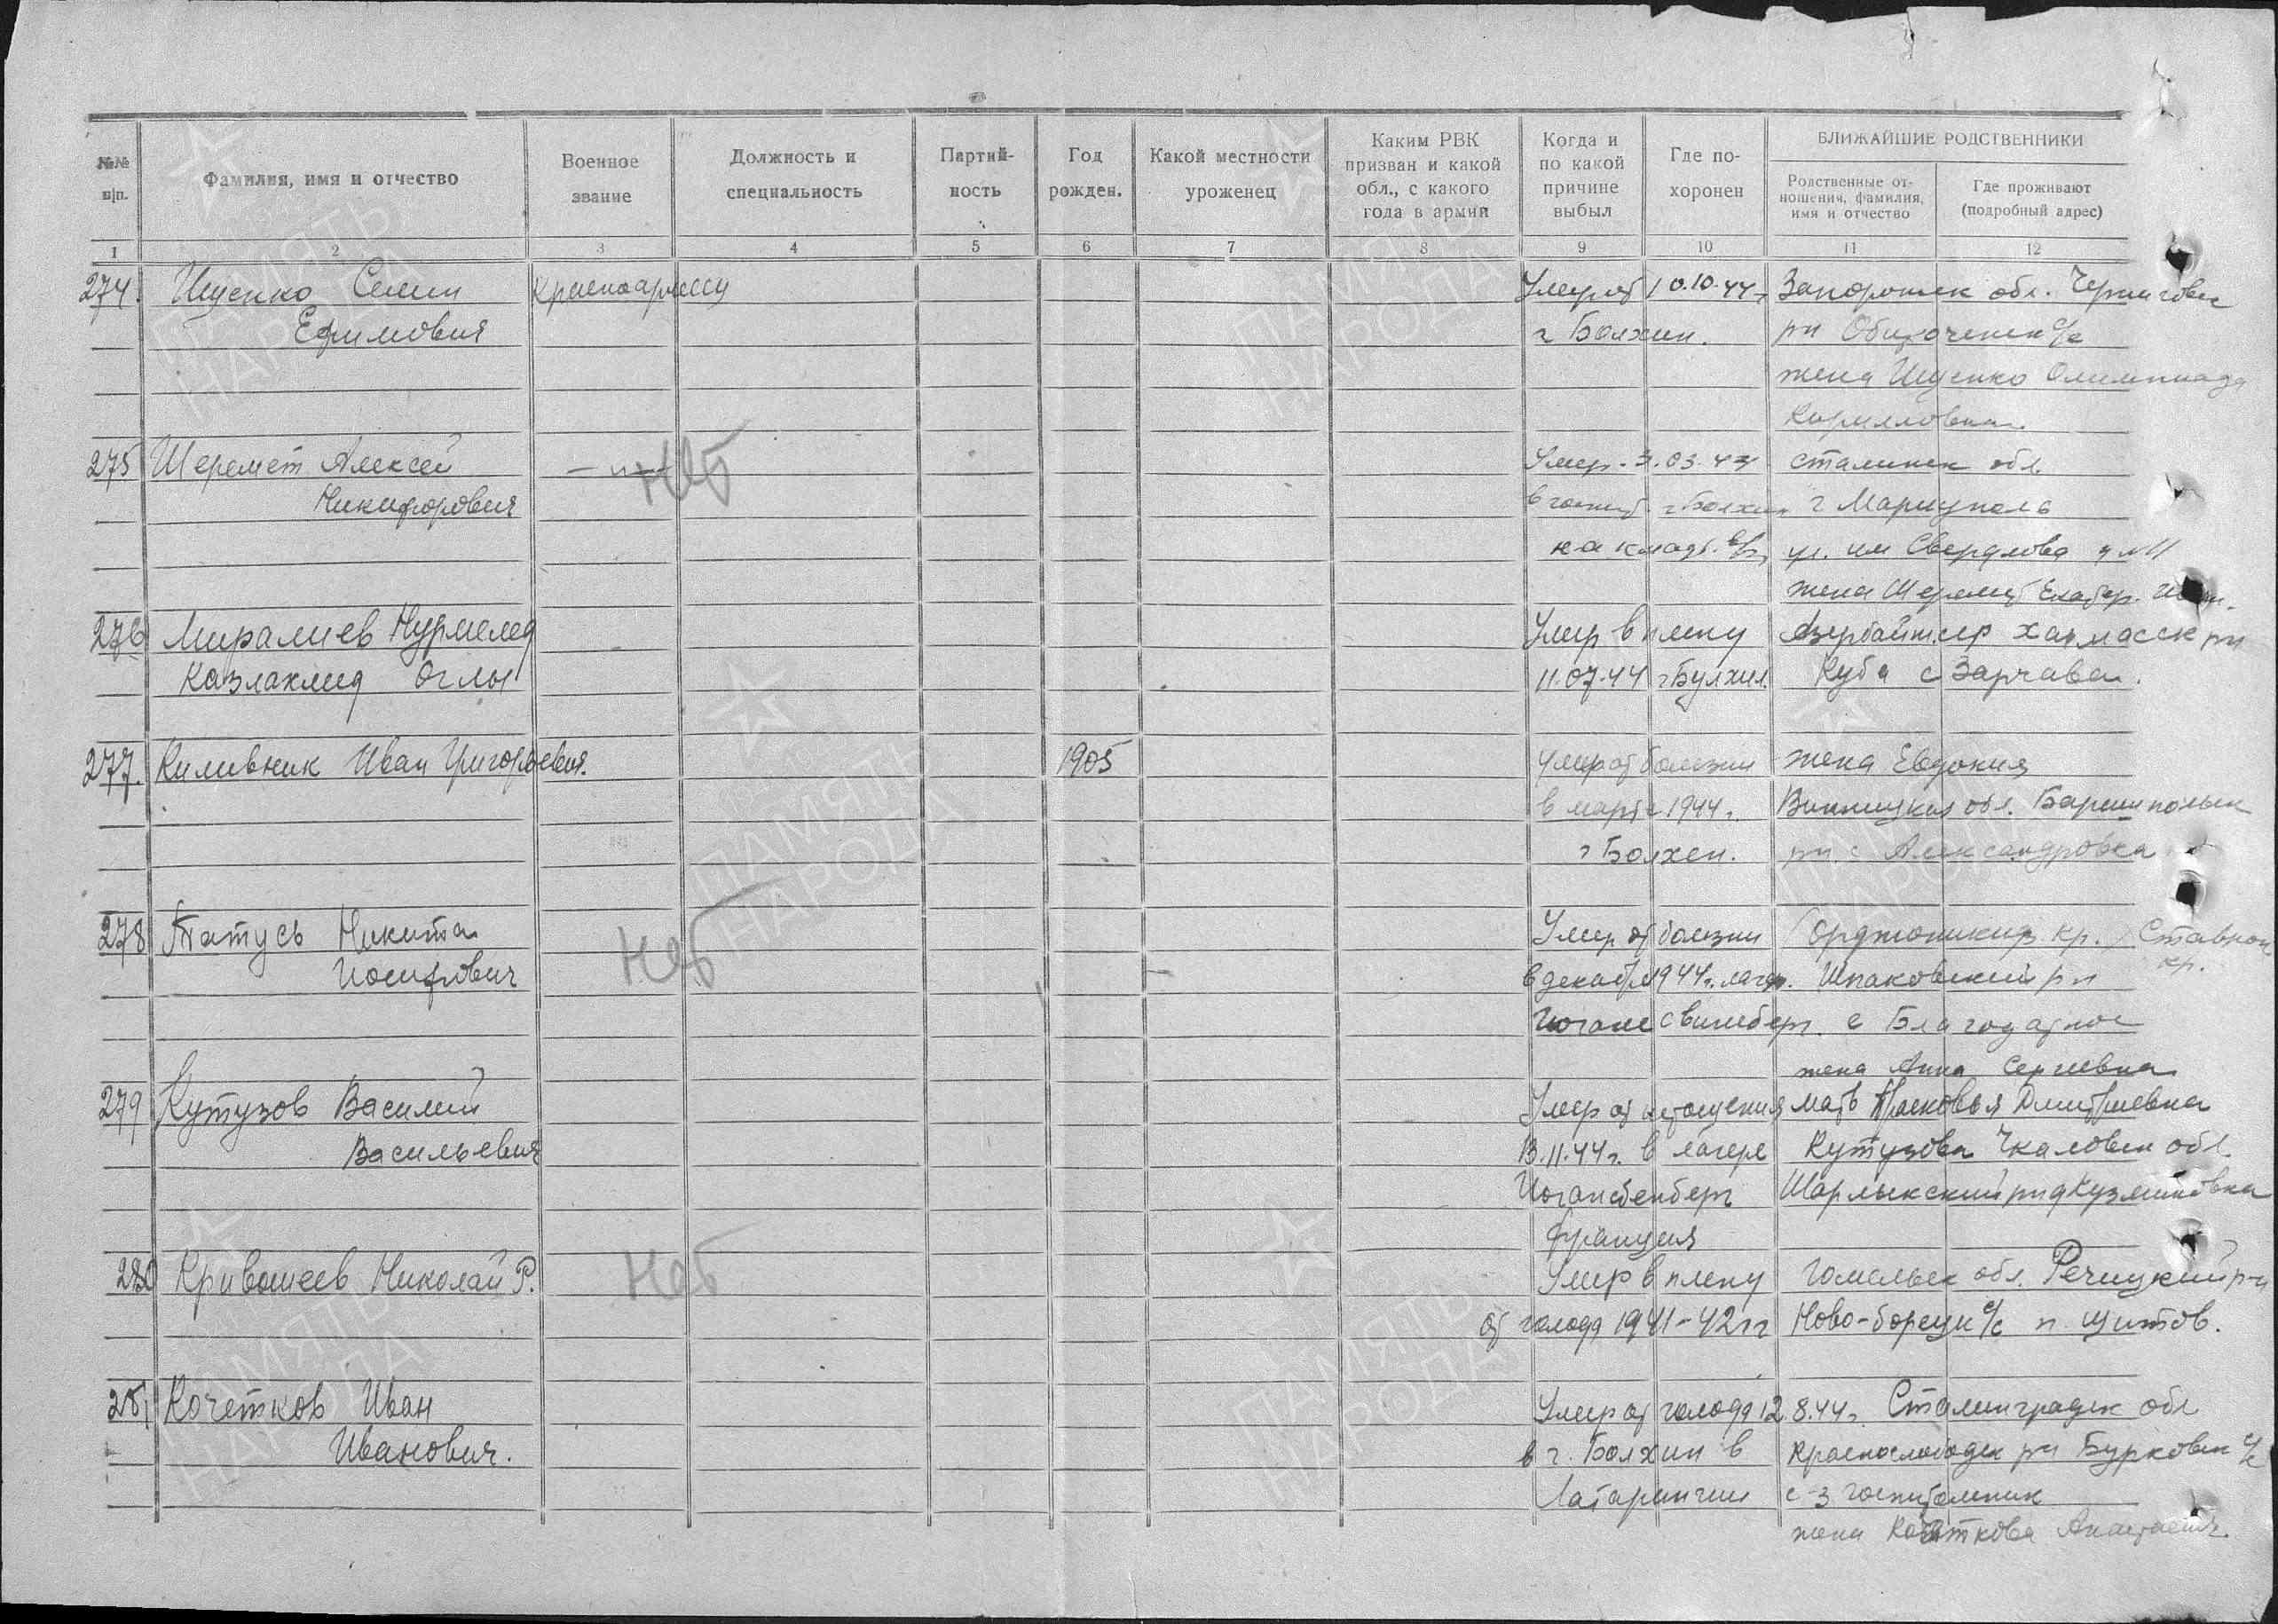 №№ п|п.
Фамилия, имя и отчество
Военное звание
Должность и специальность
Партий-ность
Год рожден.
Какой местности уроженец
Каким РВК призван и какой обл., с какого года в армии
Когда и по какой причине выбыл
Где по-хоронен
БЛИЖАЙШИЕ РОДСТВЕННИКИ
Родственные от-ношения, фамилия, имя и отчество
Где проживают (подробный адрес)
1 2 3 4 5 6 7 8 9 10 11 12
274. Ищенко Семен красноармеец 10.10.44г Запорожск обл. Черниговск
Ефимович г Болхен. рн с/с
жена Ищенко Олимпиада
Кирилловна
275 Шеремет Алексей —"— Нет Умер 3.03.43 Сталинск обл.
Никифорович г Болхен г Мариуполь
на кладб. ул. им Свердлова
жена Шеремет
276 Миралиев Нурмелед Умер в плену хачмасск рн
Казлаклид Оглы 11.07.44 г Булхил. Куба с Зарчава
277. Киливник Иван Григорьевич. 1905 умер от болезни жена Евдокия
в марте 1944г. Винницкая обл.
г Болхен. рн. с Александровка
278 Татусь Никита Нет Умер от болезни /Орджоникидз. кр./ Ставроп. кр.
Иосифович в декабре 1944г. лагер. Шпаковский рн
с Благодатное
жена Анна Сергеевна
279 Кутузов Василий Умер от истощения мать Прасковья Дмитриевна
Васильевич 13.11.44г. в лагере Кутузова Чкаловск обл.
Иогансбенберг Шарлыкский рн д Кузьминовка
Франция
280 Кривошеев Николай Р. Нет Умер в плену Гомельск обл. Речицкий р-н
от голода 1941-42гг Ново-борецк с/с п. Щитов.
281 Кочетков Иван Умер от голода 12.8.44г. Сталинградск обл
Иванович. в г. Болхин в Краснослободск рн Бурковск с/с
Латарингии с-з госпитомник
жена Кочеткова
ПАМЯТЬ НАРОДА